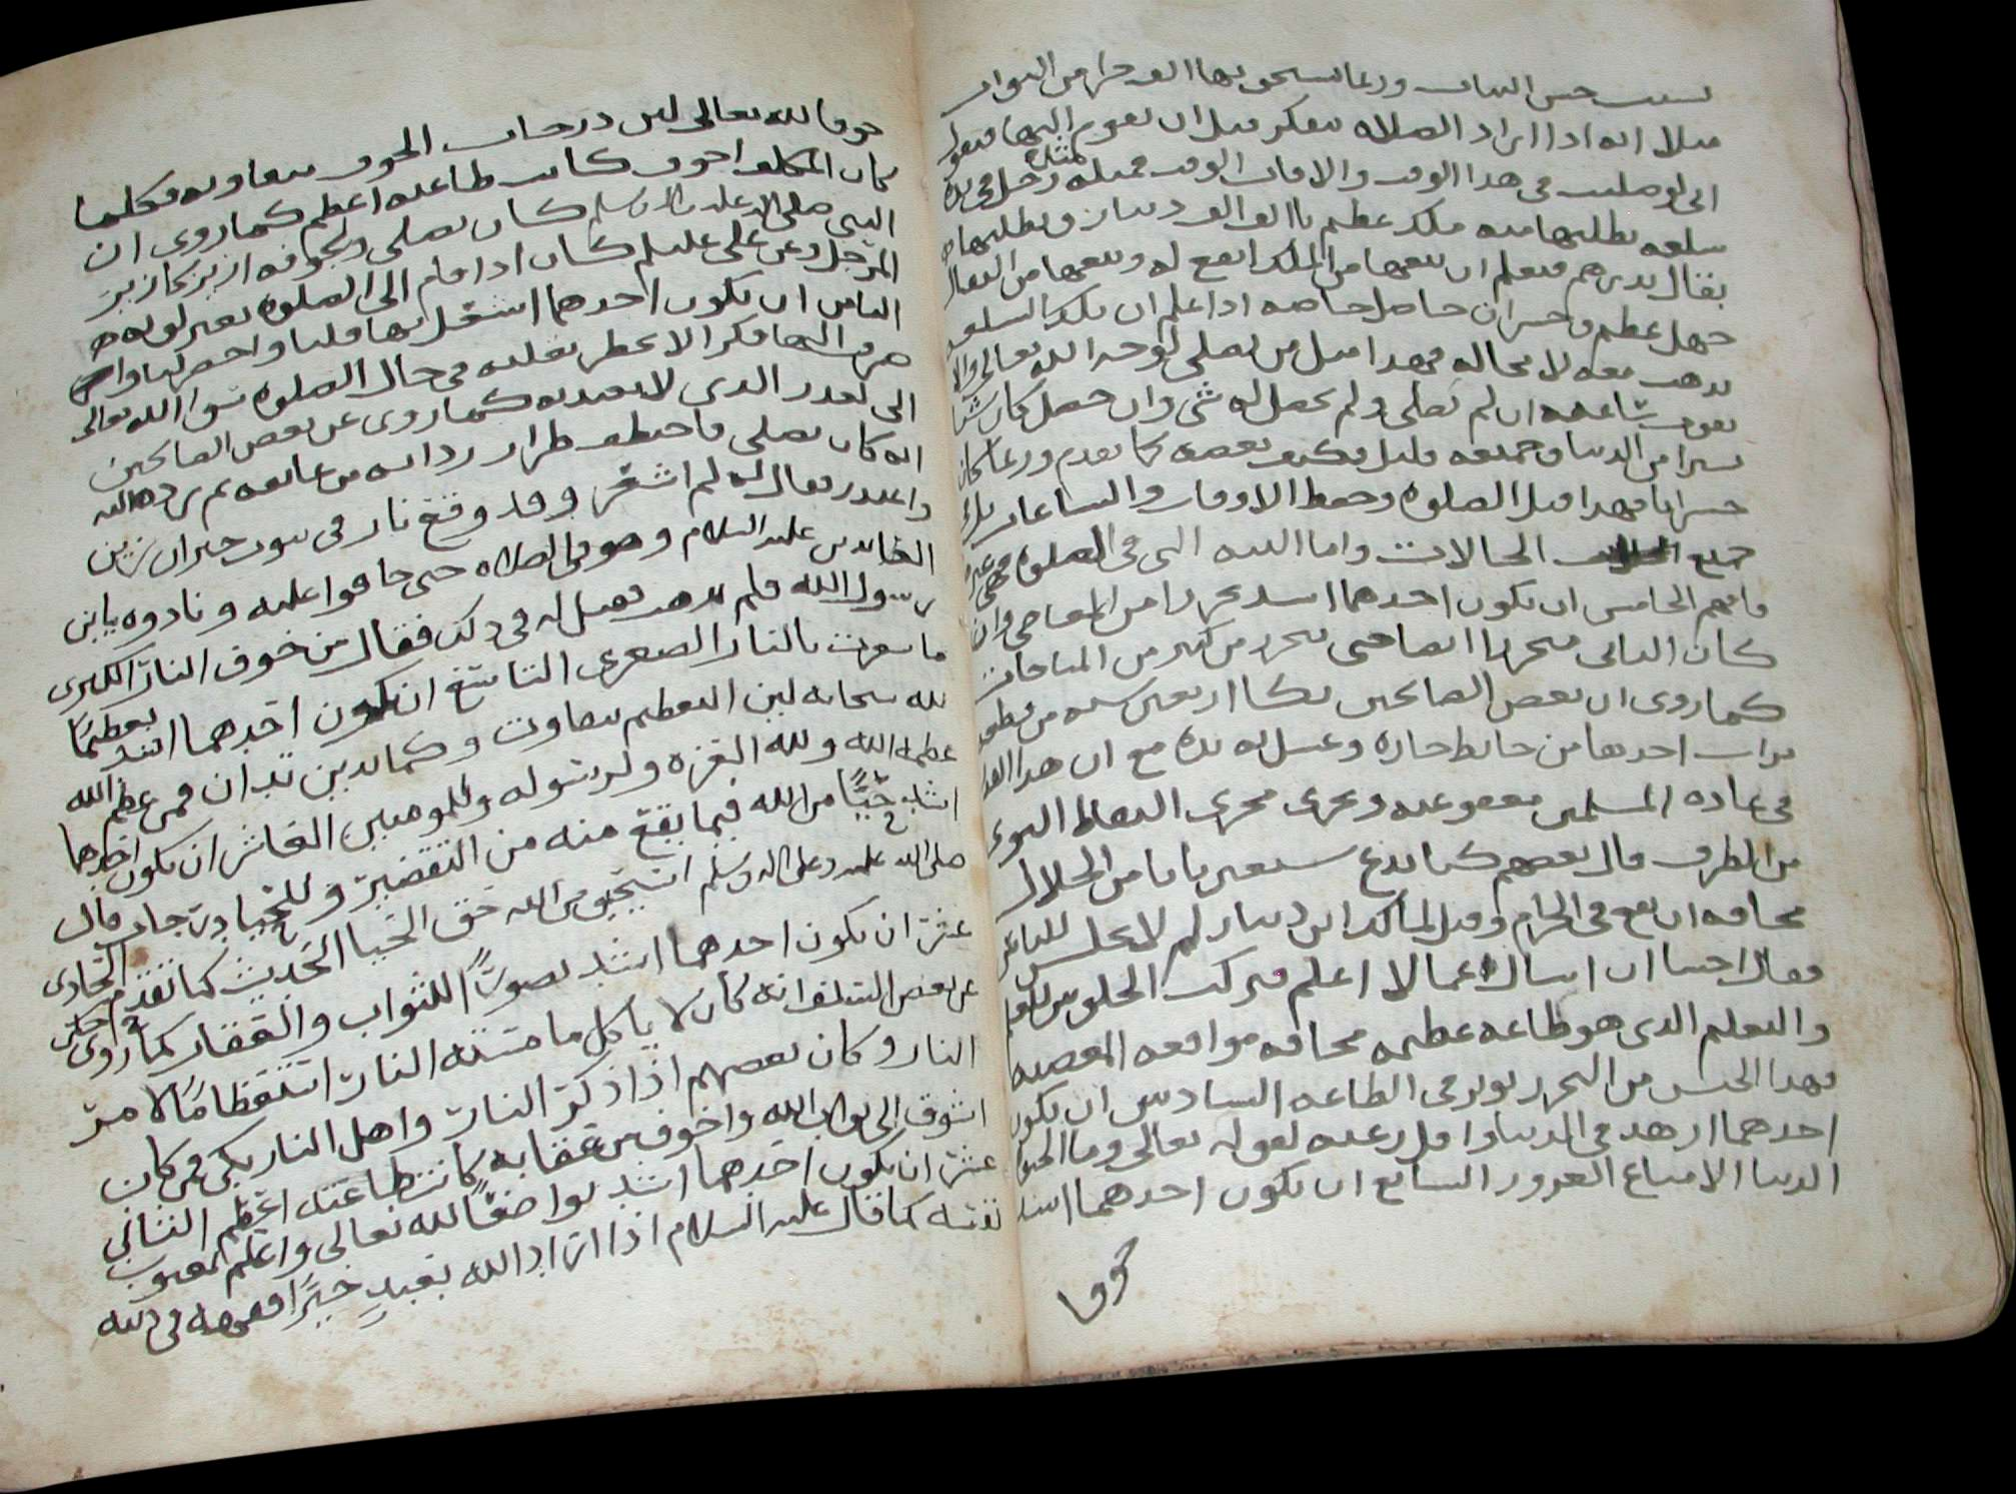 بسبب حسن النيات وربما يستحق بها الف جزا من الثواب
مثلا انه اذا اراد الصلاه يتفكر قبل ان يقوم اليها فيقول
اني لو صليت في هذا الوقت والا فات الوقت فمثله مثله رجل في يده
سلعه يطلبها منه ملك عظيم بالف الف دينار ويطلبها منه
بقال بدرهم فيعلم ان بيعها من الملك انفع له وبيعها من البقال
جهل عظيم وخسران حاصل خاصه اذا علم ان تلك السلعه
تذهب معه لا محاله فهذا مثل من يصلي لوجه الله تعالى والا
تفوت ساعته ان لم يصلي ولم يحصل له شي وان حصل كان شيا
يسيرا من الدنيا وجميعه قليل فكيف بعضه كما تقدم وربما كان
خسرانا فهذا قبل الصلوه وحفظ الاوقات والساعات
جميع الحالات واما النيه التي في الصلوه فهي غيره
فافهم الخامس ان يكون احدهما اشد تحرزا من المعاصي وان
كان الثاني متحرزا ايضا حتى يتحرز من كثير من المباحات
كما روي ان بعض الصالحين بكا اربعين سنه من قطعه
تراب اخذها من حايط جاره وغسل به يده مع ان هذا القدر
في عاده المسلمين معفو عنه ويجري مجرى التقاط النوى
من الطرق قال بعضهم كنا ندع سبعين بابا من الحلال
مخافه ان نقع في الحرام وقيل لمالك ابن دينار لم لا تجلس للناس
فقال اخشا ان اسال عما لا اعلم فترك الجلوس للعلم
والتعليم الذي هو طاعه عظيمه مخافه مواقعه المعصيه
فهذا الجنس من التحرز يوثر في الطاعه السادس ان يكون
احدهما ازهد في الدنيا واقل رغبه لقوله تعالى وما الحيوه
الدنيا الا متاع الغرور السابع ان يكون احدهما اشد
خوفا
خوفا لله تعالى لان درجات الخوف متفاوته فكلما
كان المكلف اخوف كانت طاعته اعظم كما روي ان
النبي صلى الله عليه واله وسلم كان يصلي ولجوفه ازيز كازيز
المرجل وعن علي عليلم كان اذا قام الى الصلوه تغير لونه
الثامن ان يكون احدهما اشغل بها قلبا واحضر لبا واس
صرف اليها فكرا لا يخطر بقلبه في حال الصلوه سوا الله تعالى
الى القدر الذي لا يعتد به كما روي عن بعض الصالحين
انه كان يصلي فاختطف طرار رداه من عاتقه ثم رده اليه
واعتذر فقال له لم اشعر وقد وقع نار في بيوت جيران زين
العابدين عليه السلام وهو في الصلاه حتى خافوا عليه ونادوه يابن
رسول الله فلم يذهب فقيل له في ذلك فقال من خوف النار الكبرى
ما شعرت بالنار الصغرى التاسع ان يكون احدهما اشد تعظيمًا
لله سبحانه لان التعظيم يتفاوت وكما تدين تدان فمن عظم الله
عظمه الله ولله العزه ولرسوله وللمومنين العاشر ان يكون احدهما
اشد حيًا من الله فيما يقع منه من التقصير وللحيا درجات قال
صلى الله عليه وعلى اله وسلم استحيوا من الله حق الحيا الحديث كما تقدم الحادي
عشر ان يكون احدهما اشد تصورًا للثواب والعقاب كما روي
عن بعض السلف انه كان لا ياكل ما مسته النار استفظامًا لامر
النار وكان بعضهم اذا ذكر النار واهل النار يبكي فمن كان
اشوق الى ثواب الله واخوف من عقابه كانت طاعته اعظم الثاني
عشر ان يكون احدهما اشد تواضعًا لله تعالى واعلم بعيوب
نفسه كما قال عليه السلام اذا اراد الله بعبدٍ خيرًا فقهه في دينه